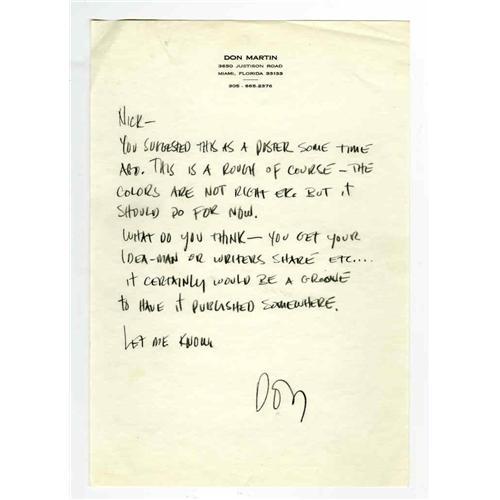 DON MARTIN
3650 JUSTISON ROAD
MIAMI, FLORIDA 33133
305 - 665-2376
NICK—
YOU SUGGESTED THIS AS A POSTER SOME TIME
AGO. THIS IS A ROUGH OF COURSE — THE
COLORS ARE NOT RIGHT ETC. BUT IT
SHOULD DO FOR NOW.
WHAT DO YOU THINK — YOU GET YOUR
IDEA-MAN OR WRITERS SHARE ETC....
IT CERTAINLY WOULD BE A GROOVE
TO HAVE IT PUBLISHED SOMEWHERE.
LET ME KNOW.
DON